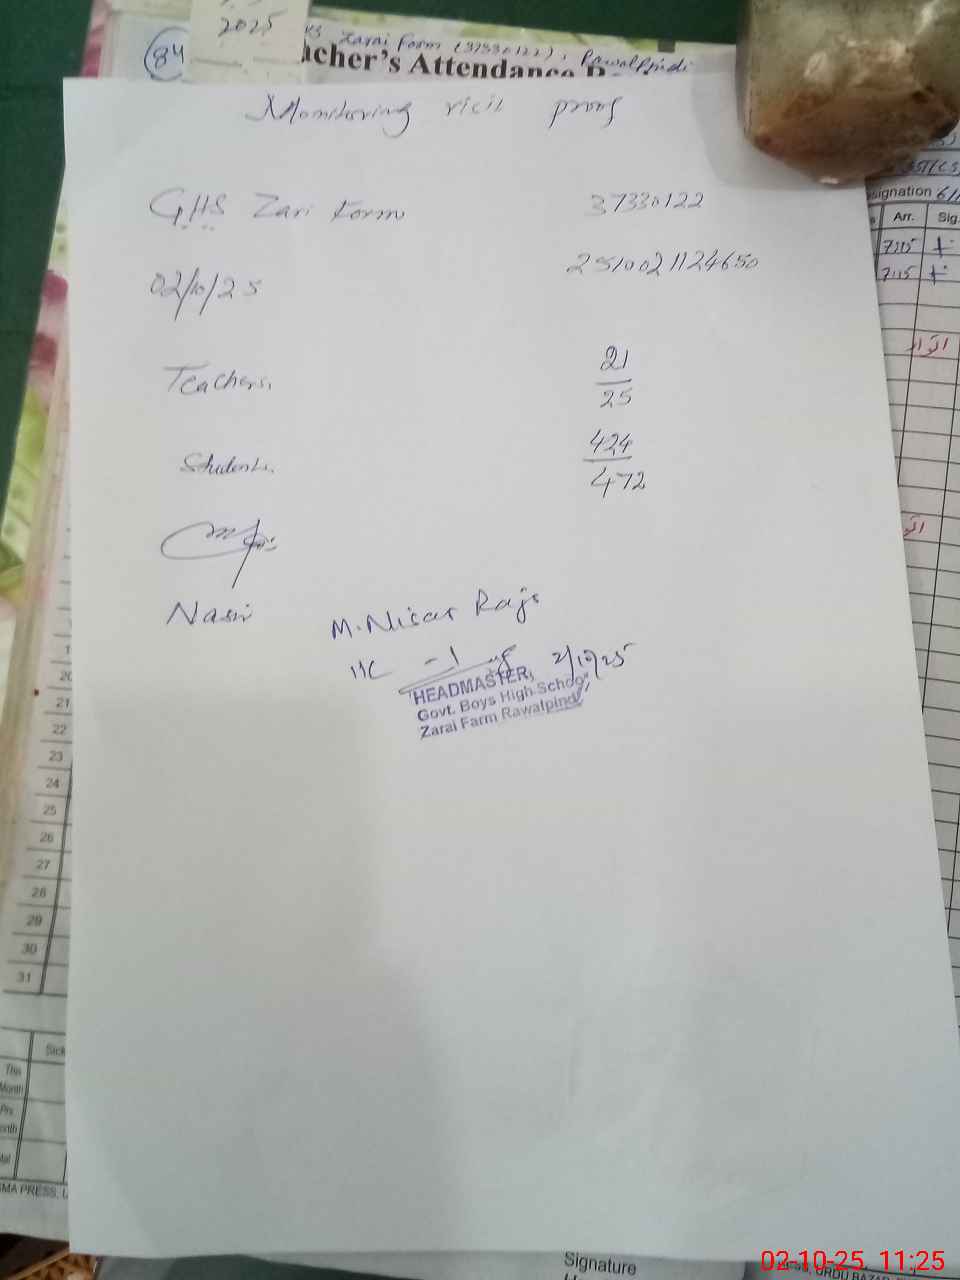 2025
84
Zarai Form (37330122), Rawalpindi
acher's Attendance
Monitoring visit proof
GHS Zari Form 37330122
02/10/25 2510021124650
Teachers. 21
25
Students. 424
472
Nasir
M. Nisar Raja
I/C
2/10/25
HEADMASTER,
Govt. Boys High School
Zarai Farm Rawalpindi
signation
Arr. Sig.
7:15
7:15
اتوار
20
21
22
23
24
25
26
27
28
29
30
31
Sick
This
Month
SMA PRESS,
Signature
02-10-25 11:25